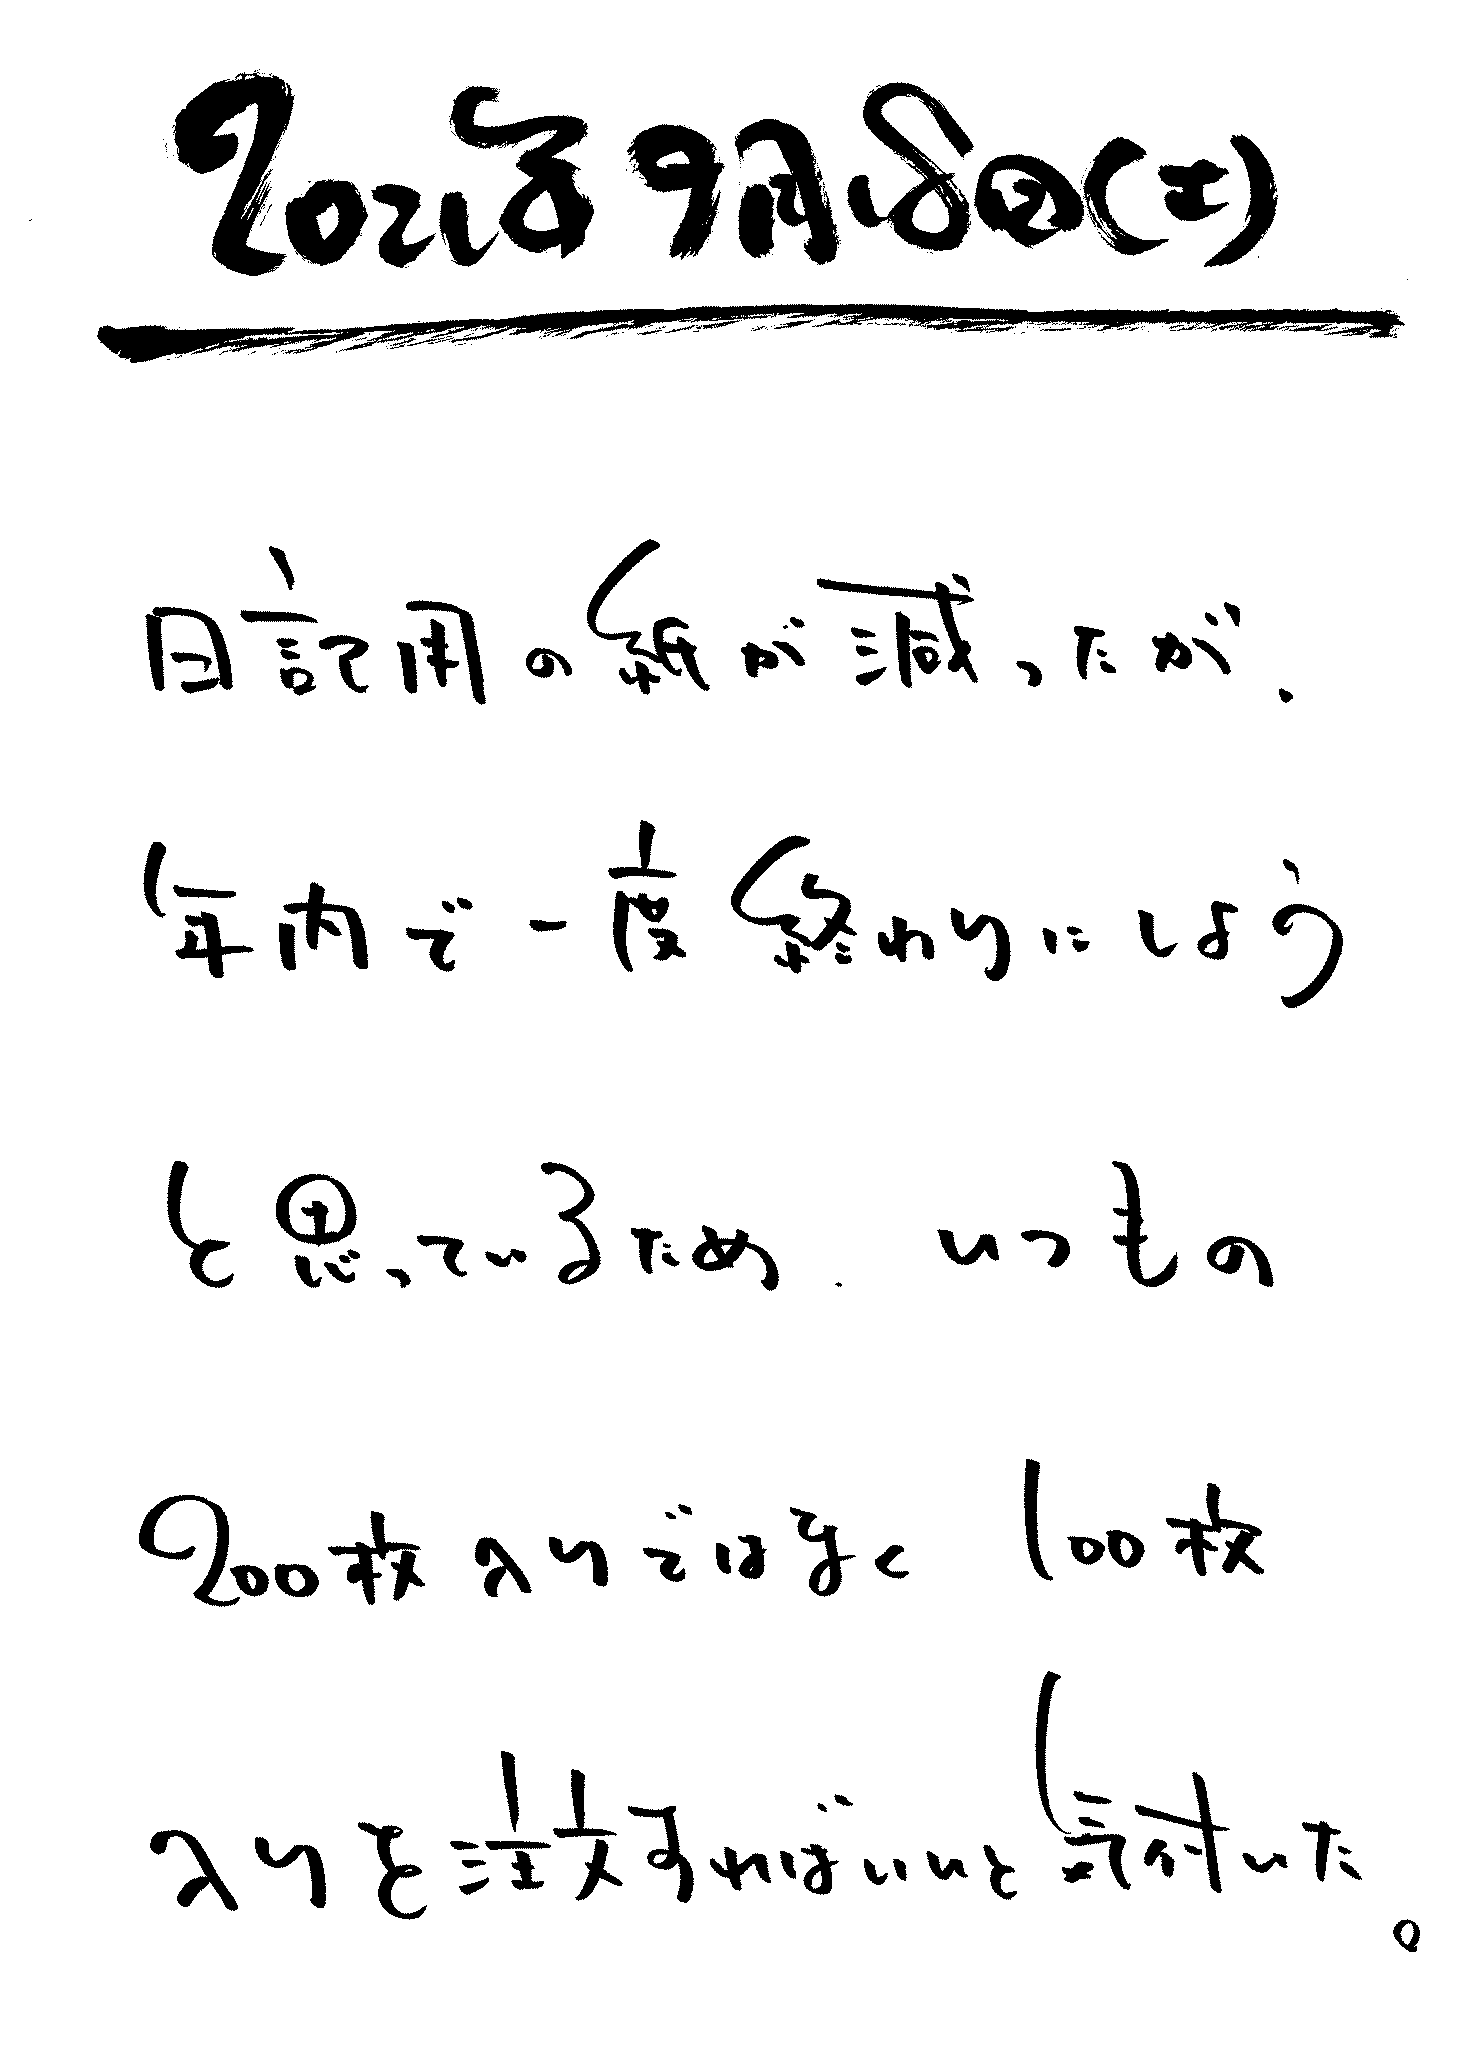 2021年9月18日(土)
日記用の紙が減ったが、
年内で一度終わりにしよう
と思っているため、いつもの
200枚入りではなく100枚
入りを注文すればいいと気付いた。